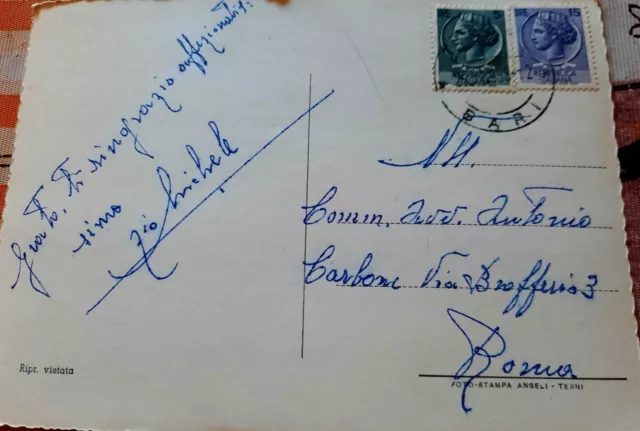 Grato, ti ringrazio affezionatis:
simo
zio Michele
Ripr. vietata
15
BARI
Comm. Avv. Antonio
Carbone Via Brofferio 3
Roma
FOTO-STAMPA ANGELI - TERNI